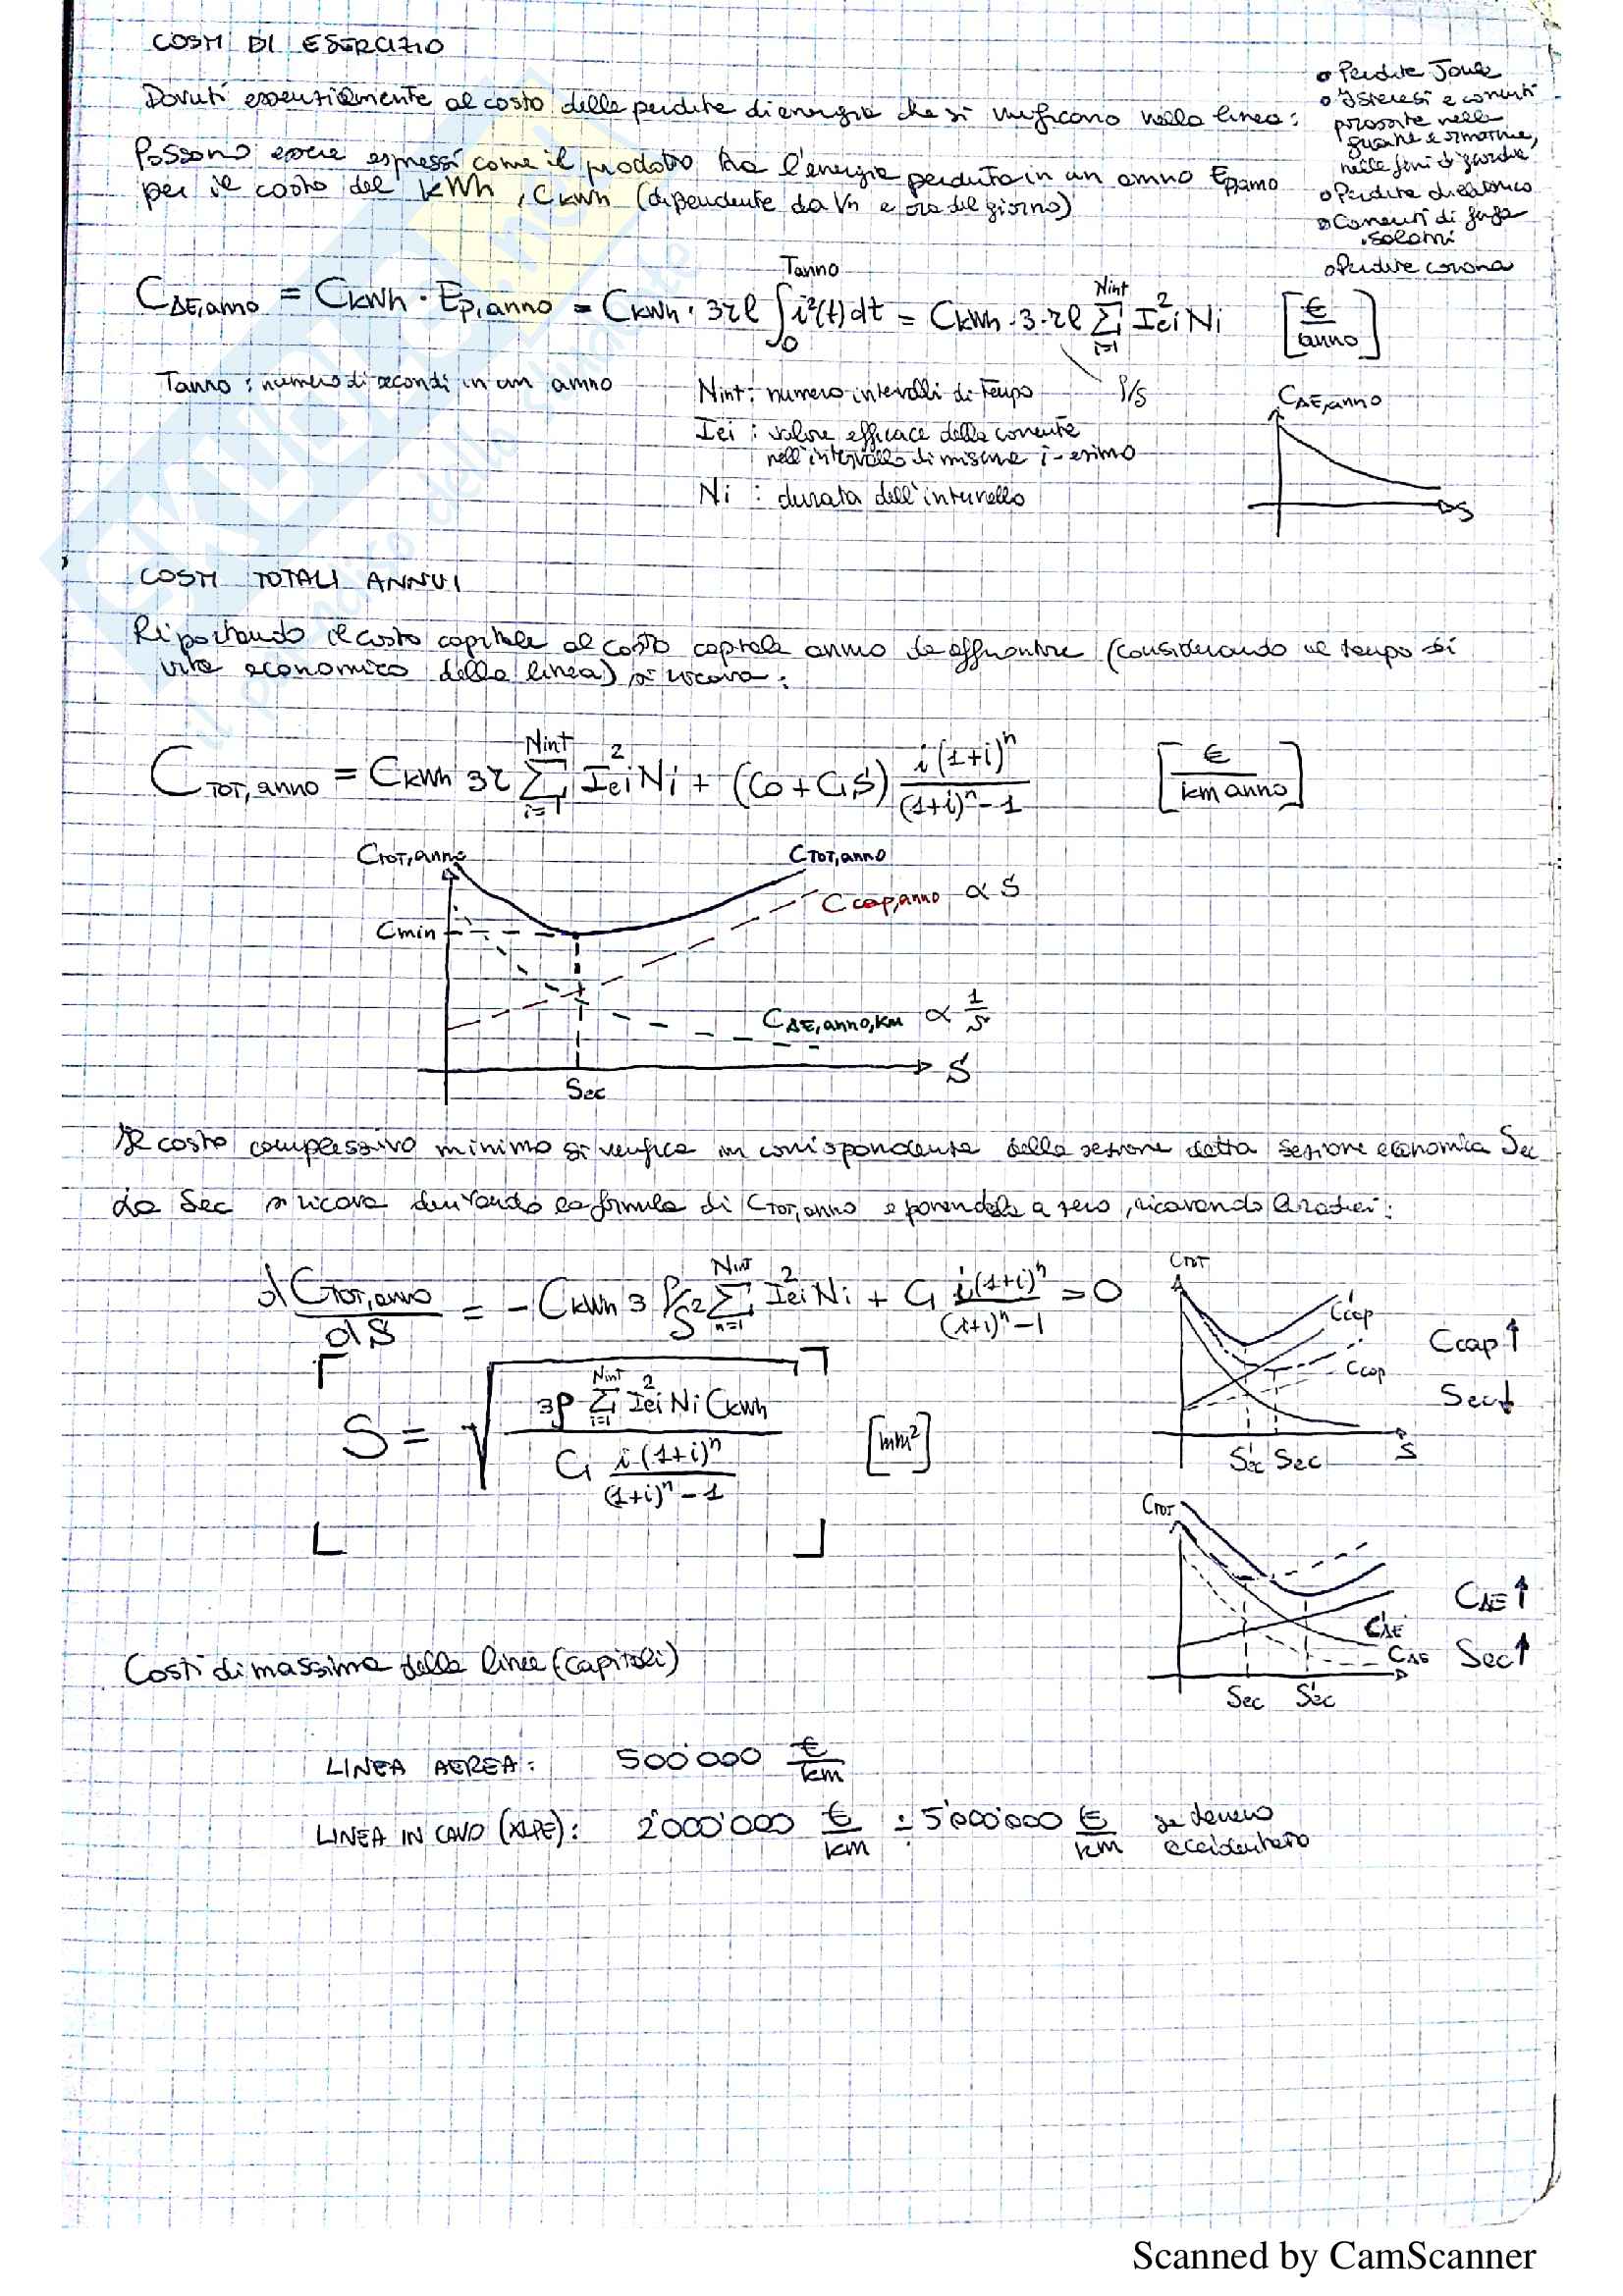 COSTI DI ESERCIZIO
Dovuti essenzialmente al costo delle perdite di energia che si verificano nella linea:
o Perdite Joule
o Isteresi e correnti
parassite nelle
guaine e armature,
nelle funi di guardia
o Perdite dielettrico
o Correnti di fuga
isolatori
o Perdite corona
Possono essere espressi come il prodotto tra l'energia perduta in un anno Ep,anno
per il costo del kWh, CkWh (dipendente da Vn e ora del giorno)
CΔE,anno = CkWh · Ep,anno = CkWh · 3rl ∫₀^Tanno i²(t)dt = CkWh · 3 · rl Σ_{i=1}^{Nint} Iei² Ni [€/anno]
Tanno : numero di secondi in un anno
Nint : numero intervalli di tempo
ρ/S
Iei : valore efficace della corrente
nell'intervallo di misura i-esimo
Ni : durata dell'intervallo
CΔE,anno
S
COSTI TOTALI ANNUI
Riportando il costo capitale al costo capitale annuo da affrontare (considerando il tempo di
vita economico della linea) si ricava:
CTOT,anno = CkWh 3r Σ_{i=1}^{Nint} Iei² Ni + (C0+C1S) i(1+i)^n / ((1+i)^n - 1) [€/km anno]
CTOT,anno
CTOT,anno
Ccap,anno ∝ S
Cmin
CΔE,anno,km ∝ 1/S
S
Sec
Il costo complessivo minimo si verifica in corrispondenza della sezione detta sezione economica Sec
La Sec si ricava derivando la formula di CTOT,anno e ponendola a zero, ricavando le radici:
dCTOT,anno/dS = - CkWh 3 ρ/S² Σ_{n=1}^{Nint} Iei² Ni + C1 i(1+i)^n / ((1+i)^n - 1) = 0
S = √( 3ρ Σ_{i=1}^{Nint} Iei² Ni CkWh / ( C1 i(1+i)^n / ((1+i)^n - 1) ) ) [mm²]
CTOT
C'cap
Ccap
Ccap ↑
Sec ↓
S'ec Sec
S
CTOT
CΔE ↑
C'ΔE
CΔE
Sec ↑
Sec S'ec
Costi di massima delle linee (capitali)
LINEA AEREA: 500'000 €/km
LINEA IN CAVO (XLPE): 2'000'000 €/km ÷ 5'000'000 €/km se terreno
accidentato
Scanned by CamScanner